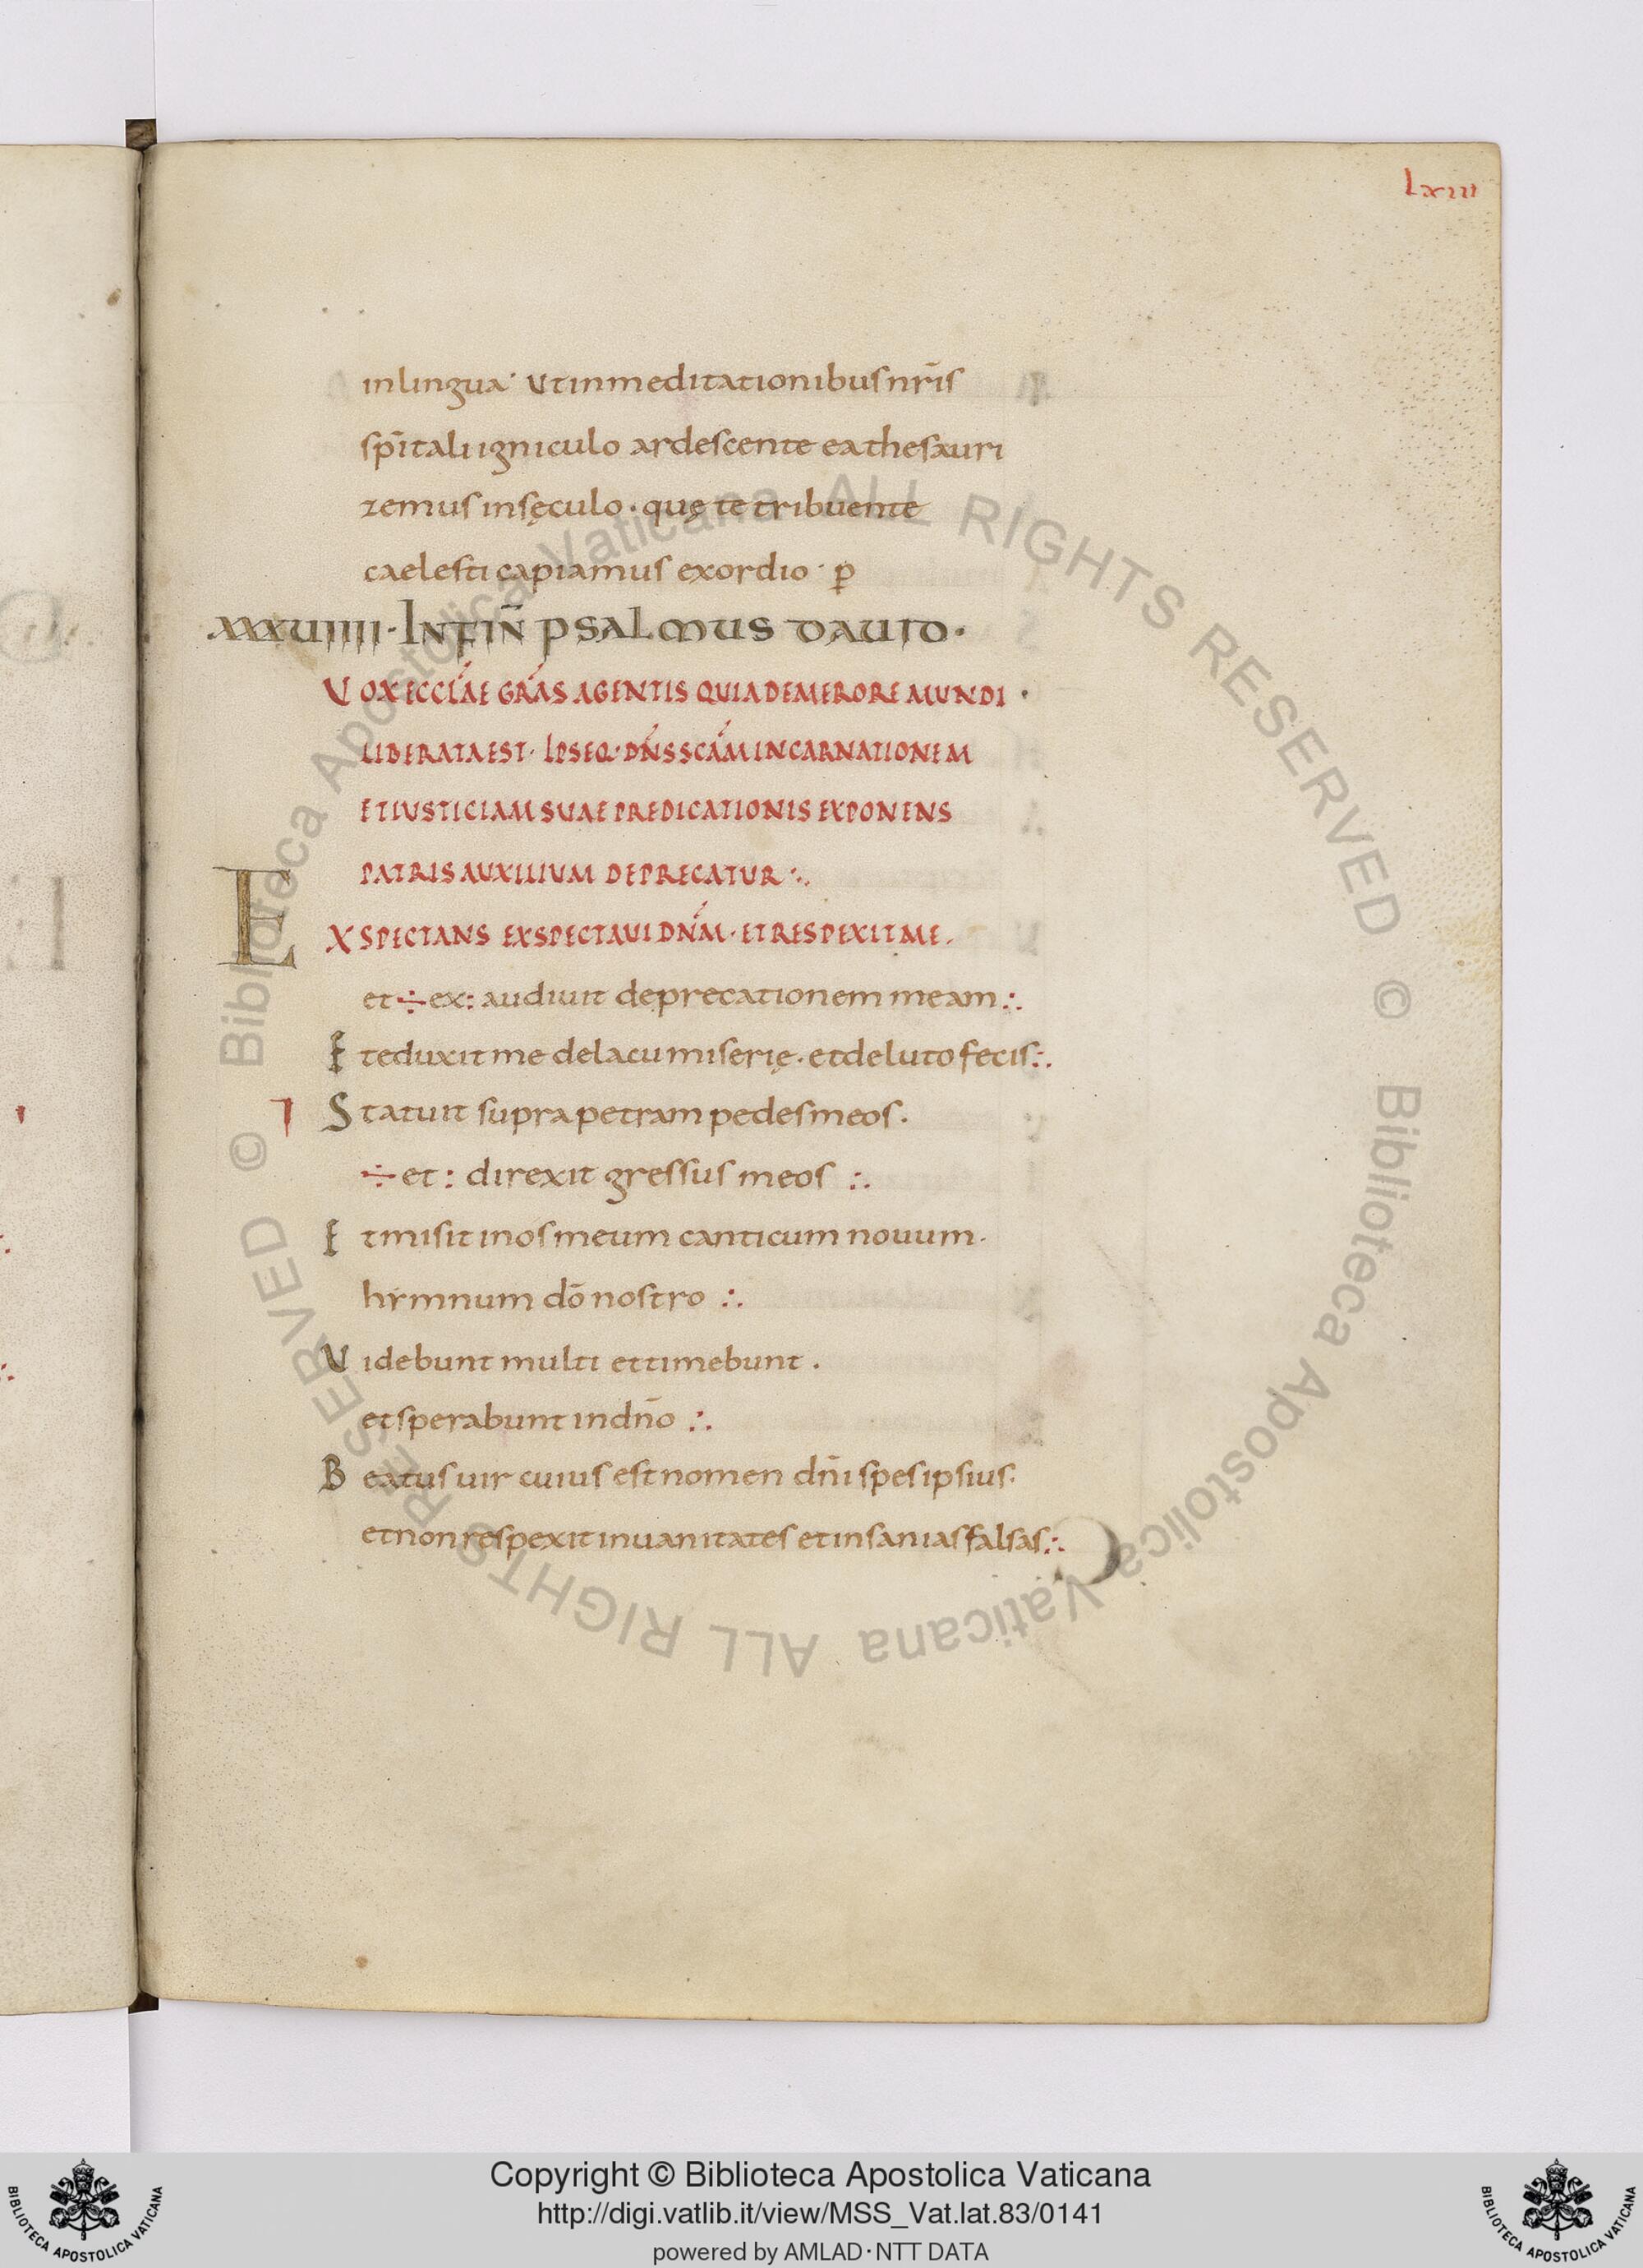 Lxiii
in lingua· Ut in meditationibus nr̄is
sp̄itali igniculo ardescente ea thesauri
zemus in sęculo· quę te tribuente
caelesti capiamus exordio· p̄
XXXVIIII· IN FIN̄ PSALMUS DAUID·
UOX ECCL̄AE GR̄AS AGENTIS QUIA DE MERORE MUNDI·
LIBERATA EST· IPSEQ· DN̄S SC̄AM INCARNATIONEM
ET IUSTICIAM SUAE PREDICATIONIS EXPONENS
PATRIS AUXILIUM DEPRECATUR ∴
EXSPECTANS EXSPECTAUI DN̄M· ET RESPEXIT ME.
et ÷ ex: audiuit deprecationem meam ∴
Et eduxit me de lacu miserię· et de luto fecis ∴
Statuit supra petram pedes meos.
÷ et: direxit gressus meos ∴
Et misit in os meum canticum nouum·
hymnum dō nostro ∴
Uidebunt multi et timebunt.
et sperabunt in dn̄o ∴
Beatus uir cuius est nomen dn̄i spes ipsius:
et non respexit in uanitates et insanias falsas ∴
© Biblioteca Apostolica Vaticana ALL RIGHTS RESERVED
© Biblioteca Apostolica Vaticana ALL RIGHTS RESERVED
Copyright © Biblioteca Apostolica Vaticana
http://digi.vatlib.it/view/MSS_Vat.lat.83/0141
powered by AMLAD·NTT DATA
BIBLIOTECA APOSTOLICA VATICANA
BIBLIOTECA APOSTOLICA VATICANA